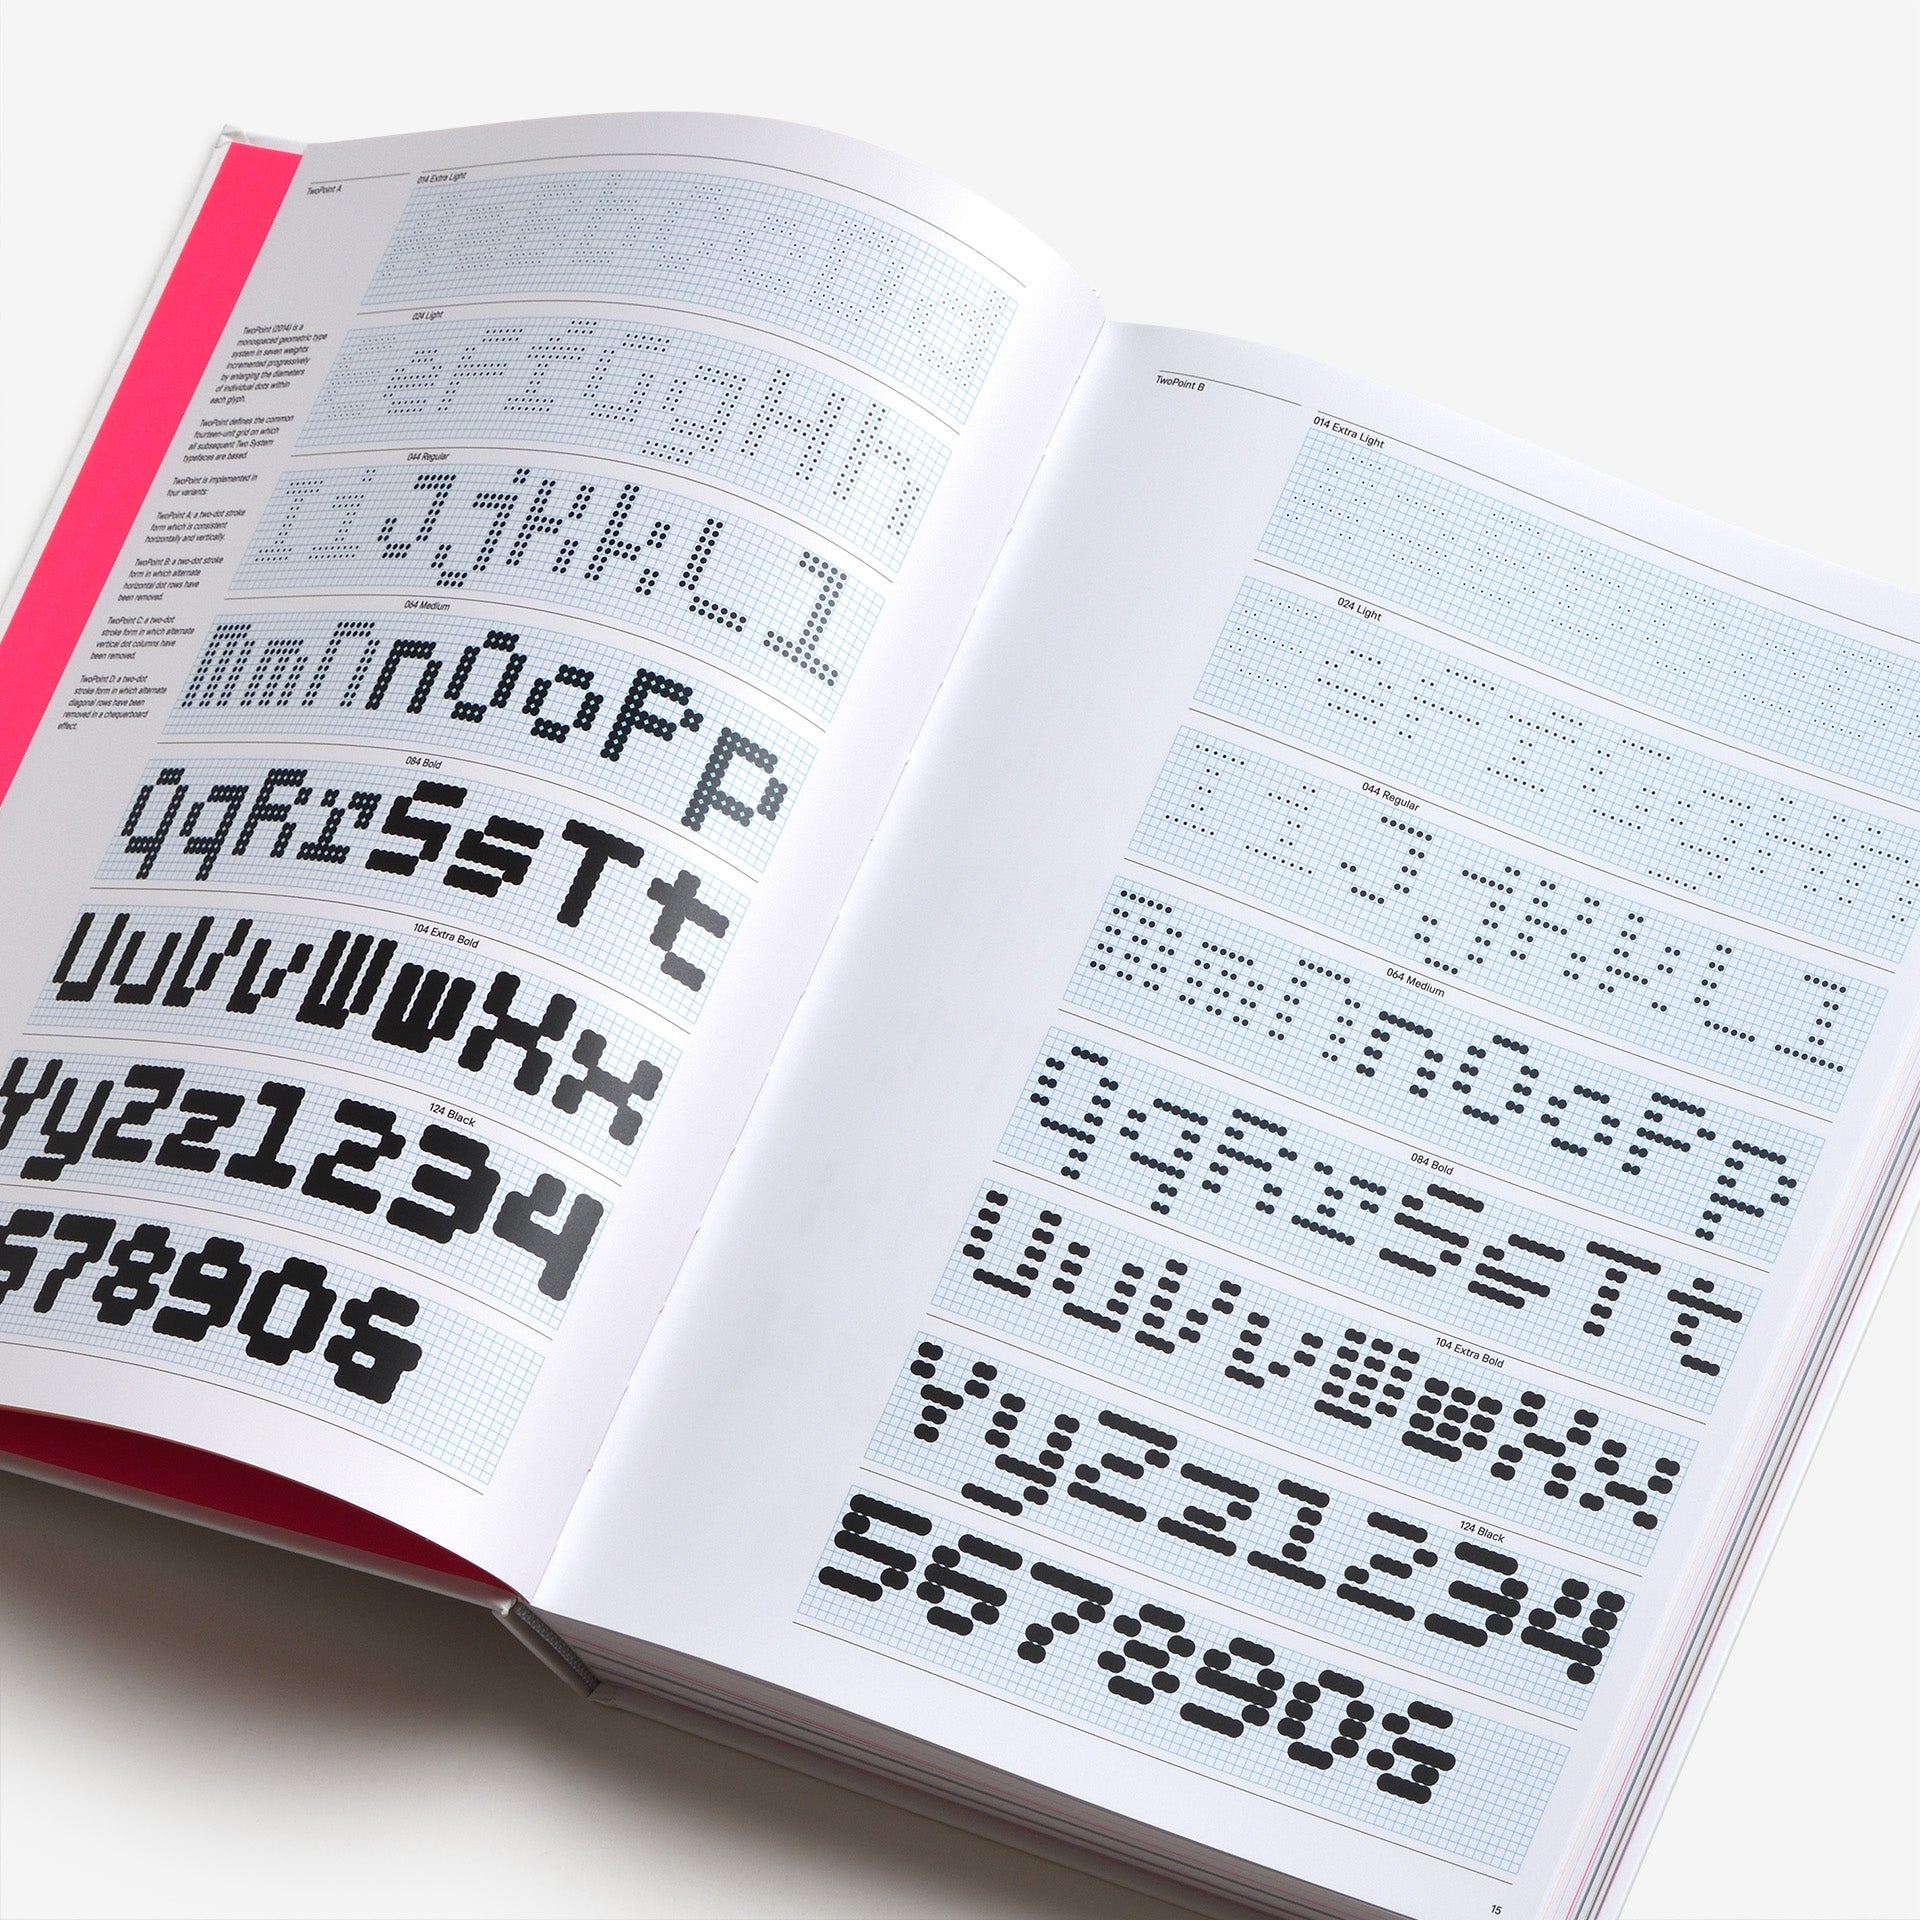 TwoPoint A
TwoPoint (2014) is a
monospaced geometric type
system in seven weights
incremented progressively
by enlarging the diameters
of individual dots within
each glyph.
TwoPoint defines the common
fourteen-unit grid on which
all subsequent Two System
typefaces are based.
TwoPoint is implemented in
four variants:
TwoPoint A: a two-dot stroke
form which is consistent
horizontally and vertically.
TwoPoint B: a two-dot stroke
form in which alternate
horizontal dot rows have
been removed.
TwoPoint C: a two-dot
stroke form in which alternate
vertical dot columns have
been removed.
TwoPoint D: a two-dot
stroke form in which alternate
diagonal rows have been
removed in a chequerboard
effect.
014 Extra Light
AaBbCcDd
024 Light
EeFfGgHh
044 Regular
IiJjKkLl
064 Medium
MmNnOoPp
084 Bold
QqRrSsTt
104 Extra Bold
UuVvWwXx
124 Black
YyZz1234
567890&
TwoPoint B
014 Extra Light
024 Light
EeFfGgHh
044 Regular
IiJjKkLl
064 Medium
MmNnOoPp
084 Bold
QqRrSsTt
104 Extra Bold
UuVvWwXx
124 Black
YyZz1234
567890&
15